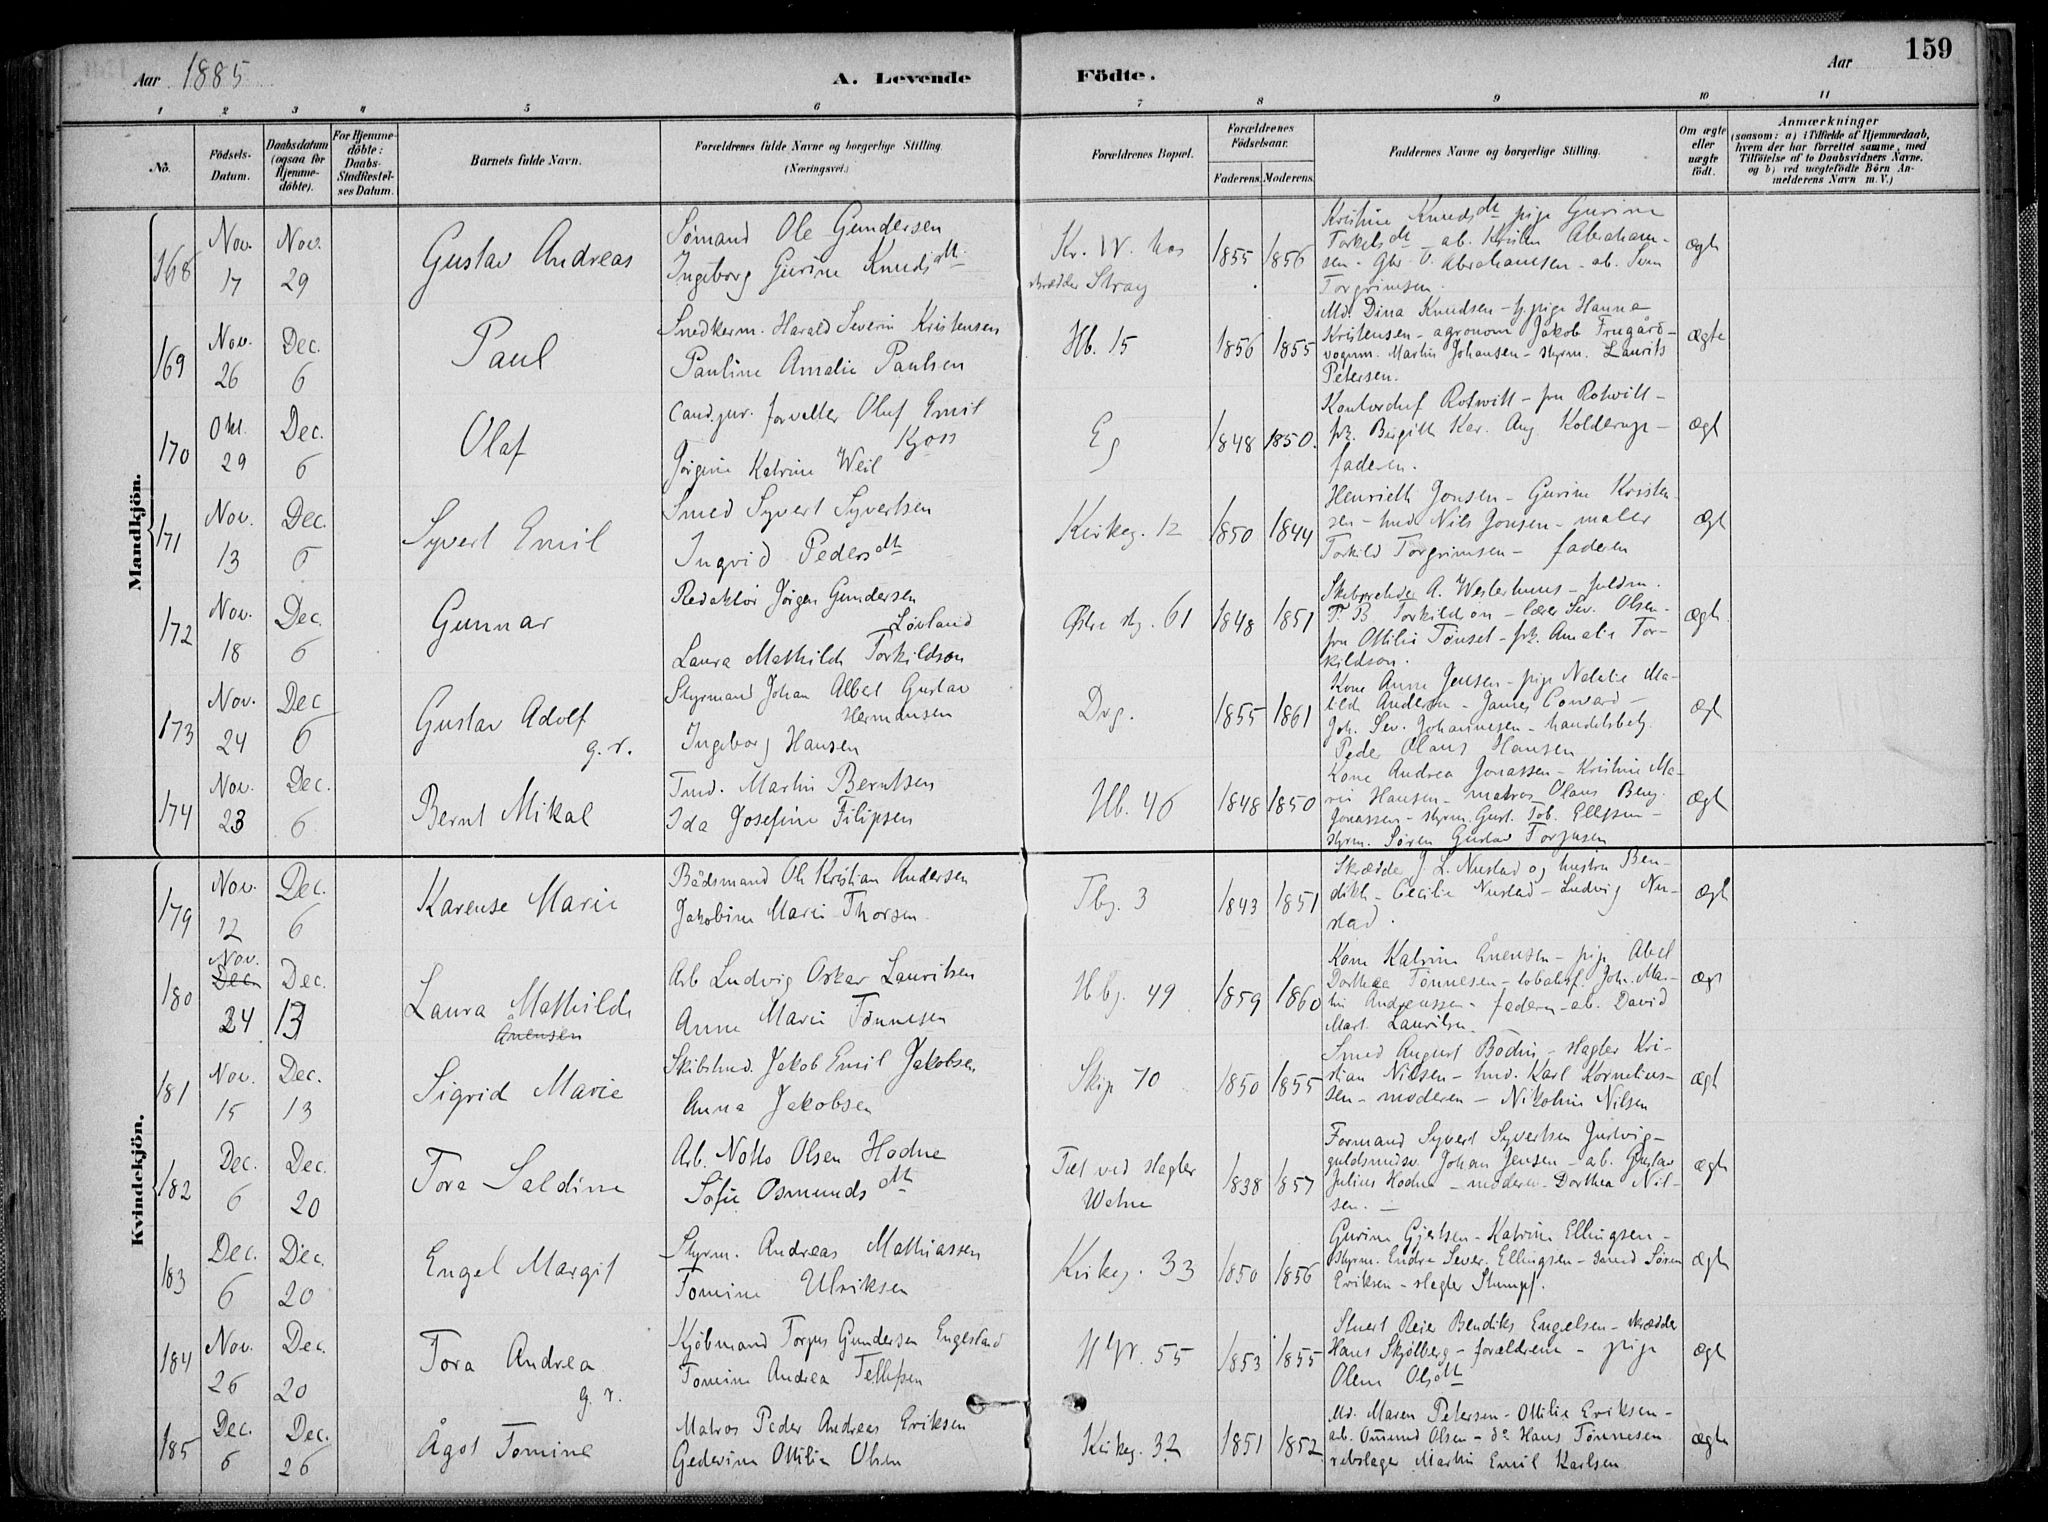 159
Aar 1885
A. Levende Födte.
Aar
1 2 3 4 5 6 7 8 9 10 11
No.
Födsels-Datum.
Daabsdatum (ogsaa for Hjemme-döbte).
For Hjemme-döbte: Daabs-Stadfæstel-ses Datum.
Barnets fulde Navn.
Forældrenes fulde Navne og borgerlige Stilling. (Næringsvei.)
Forældrenes Bopæl.
Forældrenes Födselsaar.
Faderens. Moderens.
Faddernes Navne og borgerlige Stilling.
Om ægte eller uægte födt.
Anmærkninger
(saasom: a) i Tilfælde af Hjemmedaab, hvem der har forrettet samme, med Tilföielse af to Daabsvidners Navne, og b) ved uægtefödte Börn An-melderens Navn m. V.)
Mandkjön.
168 Nov. 17 Nov. 29 Gustav Andreas
Sømand Ole Gundersen
Ingeborg Gurine Knudsdtt.
Kr. W. hos
skrædder Stray
1855 1856
Kristine Knudsdtt pige Gurine
Torkelsdtt - ab. Kristen Abraham-
sen - Gbr. O. Abrahamsen - ab. Sven
Torgrimsen.
ægt
169 Nov. 26 Dec. 6 Paul
Snedkerm. Harald Severin Kristensen
Pauline Amalie Paulsen
Hb. 15 1856 1855
Md. Dina Knudsen - pige Hanna
Kristensen - agronom Jakob Frugård -
vognm. Martin Johansen - styrm. Laurits
Petersen.
ægte
170 Okt. 29 Dec. 6 Olaf
Cand. jur. forvalter Oluf Emil
Kjoss
Jörgine Katrine Weil
Eg 1848 1850.
Kontorchef Rotwitt - fru Rotwitt -
frk. Birgitte Kar. Aug Kolderup -
faderen.
ægt
171 Nov. 13 Dec. 6 Syvert Emil
Smed Syvert Syvertsen
Ingvid Pedersdtt
Kirkeg. 12 1850 1844
Henriette Jonsen - Gurine Kristen-
sen - hmd. Nils Jonsen - maler
Torkild Torgrimsen - faderen
ægt
172 Nov. 18 Dec. 6 Gunnar
Redaktør Jörgen Gundersen
Løvland
Laura Mathilde Torkildson
Østre stg. 61 1848 1851
Skibsreder A. Westerhuus - fuldm.
T. B. Torkildson - lærer Sev. Olsen -
fru Ottilie Tønset - frk. Amalie Tor-
kildson.
ægt
173 Nov. 24 Dec. 6 Gustav Adolf
g. r.
Styrmand Johan Albert Gustav
Hermansen
Ingeborg Hansen
Drg. 1855 1861
Kone Anne Jensen - pige Natalie Ma-
tilde Andersen - James Conrad -
Joh. Sev. Johannesen - handelsbetj.
Peder Olaus Hansen
ægt
174 Nov. 23 Dec. 6 Bernt Mikal
Tmd. Martin Berntsen
Ida Josefine Filipsen
Hb. 46 1848 1850
Kone Andrea Jonassen - Kristine Ma-
rie Hansen - matros Olaus Beng.
Jonassen - styrm. Gust. Tob. Ellefsen -
styrm. Søren Gustav Torjusen
ægt
Kvindekjön.
179 Nov. 12 Dec. 6 Karense Marie
Bådsmand Ole Kristian Andersen
Jakobine Marie Thorsen
Tbg. 3 1843 1851
Skrædder J. L. Nustad og hustru Ben-
dikte - Cecilie Nustad - Ludvig Nu-
stad.
ægt
180 Nov. Dec. 24 Dec. 13 Laura Mathilde
Ånensen
Arb. Ludvig Oskar Lauritsen
Anne Marie Tønnesen
Hbg. 49 1859 1860
Kone Katrine Ånensen - pige Abel
Dorthea Tønnesen - tobaksf. Joh. Ma-
tin Andreassen - faderen - ab. David
Mart. Lauritsen.
ægt
181 Nov. 15 Dec. 13 Sigrid Marie
Skibstmd. Jakob Emil Jakobsen
Anna Jakobsen
Skip. 10 1850 1855
Smed August Bodin - slagter Kri-
stian Nilsen - hmd. Karl Kornelius-
sen - moderen - Nikoline Nilsen
ægt
182 Dec. 6 Dec. 20 Tora Saldine
Arb. Notto Olsen Hodne
Sofie Osmundsdtt
Tæt ved slagter
Wehne
1838 1857
Formand Syvert Syvertsen Justvig -
guldsmedsv. Johan Jensen - ab. Gustav
Julius Hodne - moderen - Dorthea Nil-
sen. -
ægt
183 Dec. 6 Dec. 20 Engel Margit
Styrm. Andreas Mathiassen
Tomine Ulriksen
Kirkeg. 33 1850 1856
Gurine Gjertsen - Katrine Ellingsen -
styrm. Endre Sever. Ellingsen - smed Sören
Eriksen - slagter Stumpf.
ægt
184 Nov. 26 Dec. 20 Tora Andrea
g. r.
Kjøbmand Torjus Gundersen Engestad
Tomine Andrea Tellefsen
55 1853 1855
Stuert Reier Bendiks Engelsen - skrædder
Hans Skjølberg - forældrene - pige
Olene Olsdtt
ægt
185 Dec. 6 Dec. 26 Ågot Tomine
Matros Peder Andreas Eriksen
Gedevine Ottilie Olsen
Kirkeg. 32 1851 1852
Md. Maren Petersen - Ottilie Eriksen -
arb. Osmund Olsen - do Hans Tønnesen
rebslager Martin Emil Karlsen.
ægte